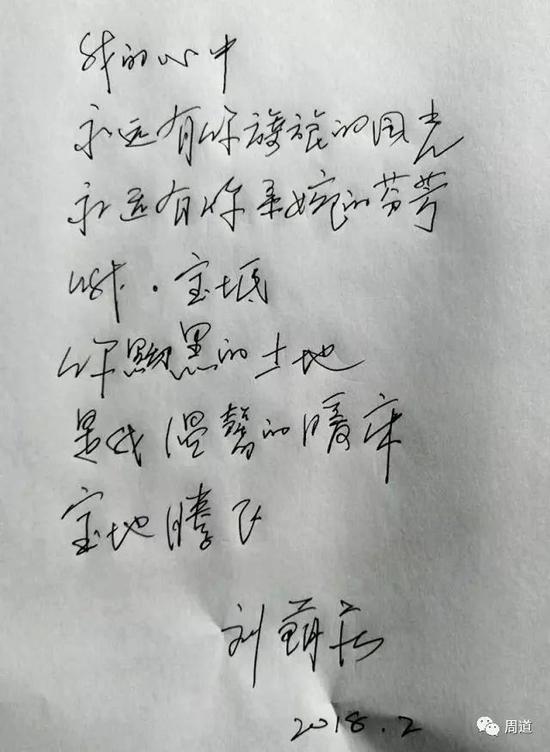 我的心中
永远有你旖旎的风光
永远有你柔婉的芬芳
哦·宝坻
你黝黑的土地
是我温馨的暖床
宝地腾飞
刘
2018.2
周道